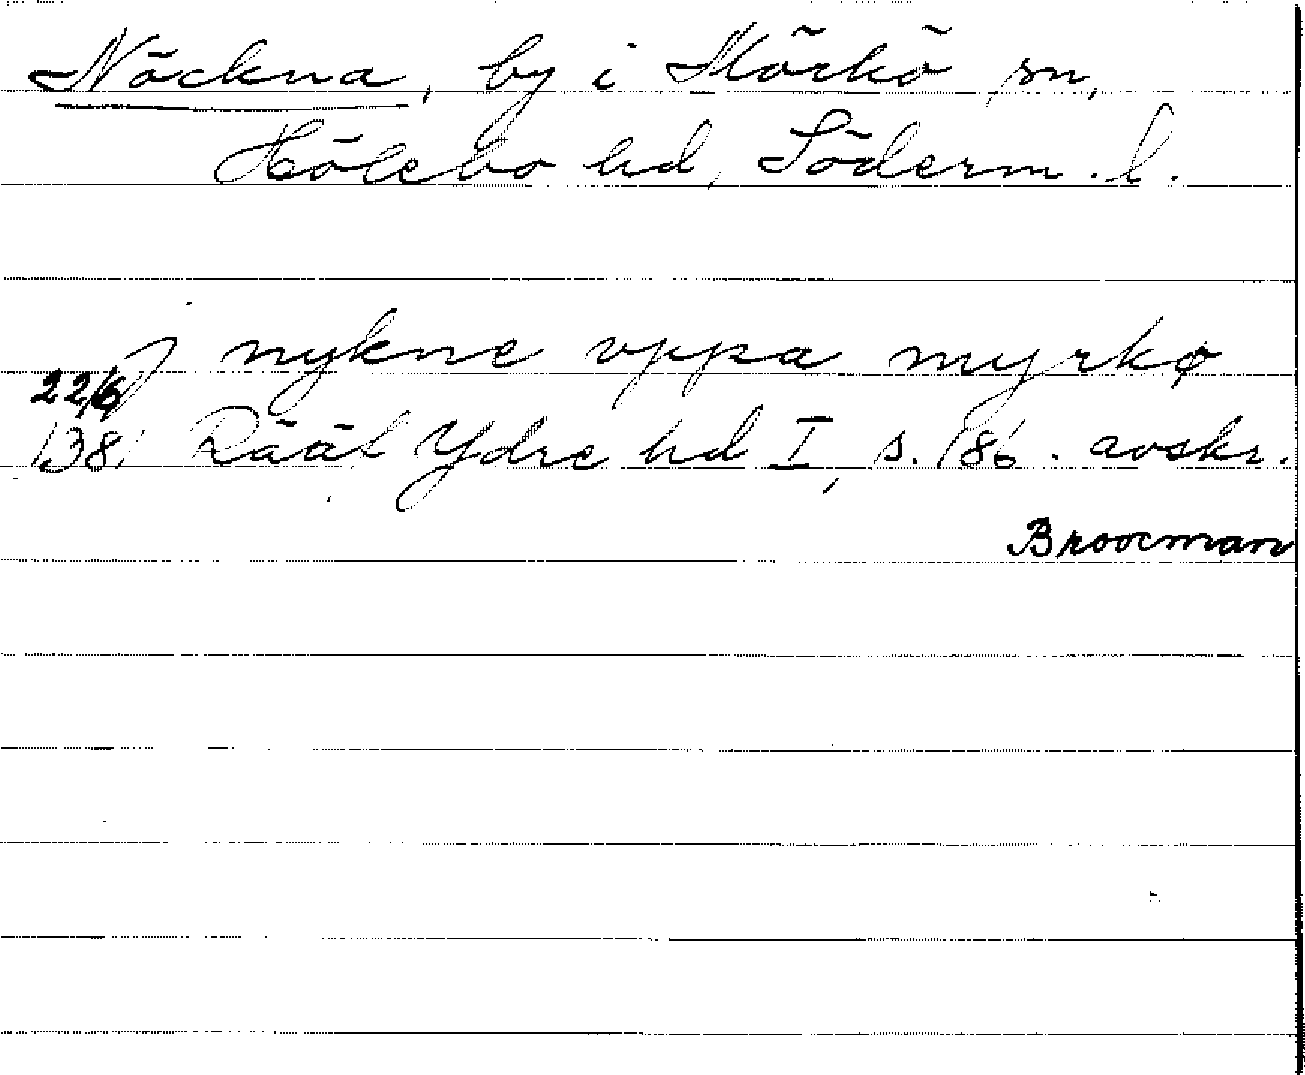 Nöckna, by i Mörkö sn,
Hölebo hd, Söderm. l.
j nykne vppa myrkø
22/6
1381 Rääf Ydre hd I, s. 186. avskr.
Broocman